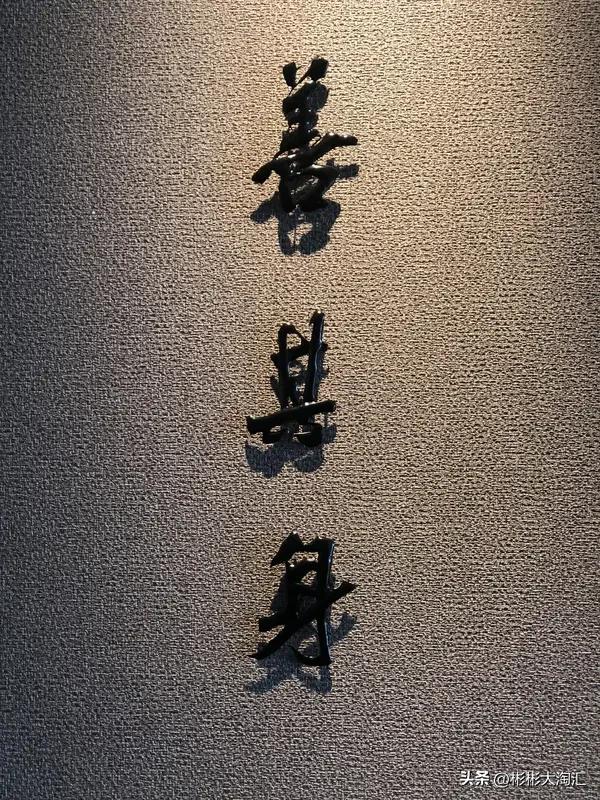 善其身
头条 @彬彬大淘汇